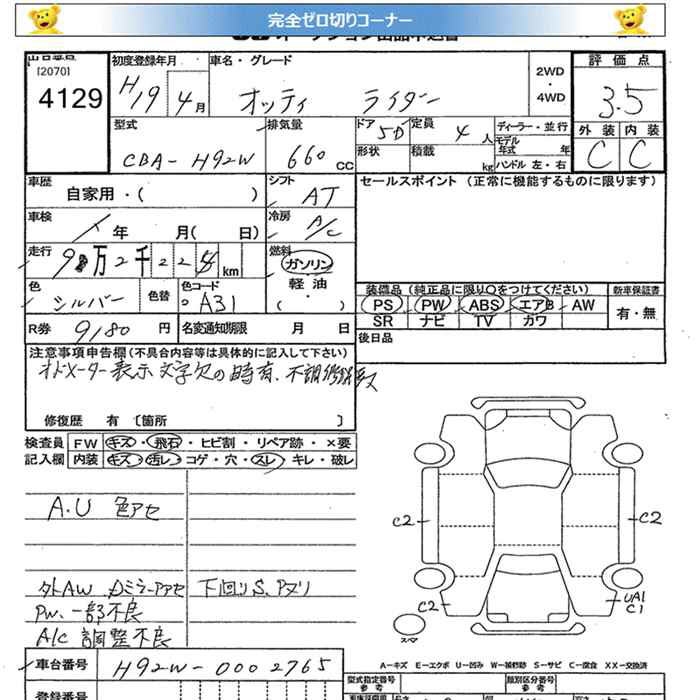 完全ゼロ切りコーナー
[2070]
4129
初度登録年月
H19 4月
車名・グレード
オッティ ライダー
2WD
・
4WD
評価点
3.5
外装 内装
C C
型式
CBA-H92W
排気量
660 CC
ドア 5D
定員 4人
形状
積載 kg
ディーラー・並行
モデル年式 年
ハンドル 左・右
車歴
自家用・( )
シフト AT
セールスポイント (正常に機能するものに限ります)
車検
年 月( 日)
冷房 A/C
走行
万 2千 2 2 km
燃料
ガソリン
軽油
・
( )
色
シルバー
色替
色コード
A31
装備品 (純正品に限り○をつけてください)
PS PW ABS エアB AW
SR ナビ TV カワ
新車保証書
有・無
R券 9180 円
名変通知期限 月 日
後日品
注意事項申告欄(不具合内容等は具体的に記入して下さい)
オドメーター表示文字欠の時有、不調
修復歴 有 〔箇所 〕
検査員 FW キズ・飛石・ヒビ割・リペア跡・×要
記入欄 内装 キズ・汚レ・コゲ・穴・スレ・キレ・破レ
A.U 色アセ
C2 C2
外AW、Dミラーアセ 下回りS、Pヌリ
C2 UA1
C1
PW、一部不良
A/C 調整不良
スペア
車台番号 H92W-0002765
A-キズ E-エクボ U-凹み W-補修跡 S-サビ C-腐食 XX-交換済
登録番号
型式指定番号
参考
類別区分番号
参考